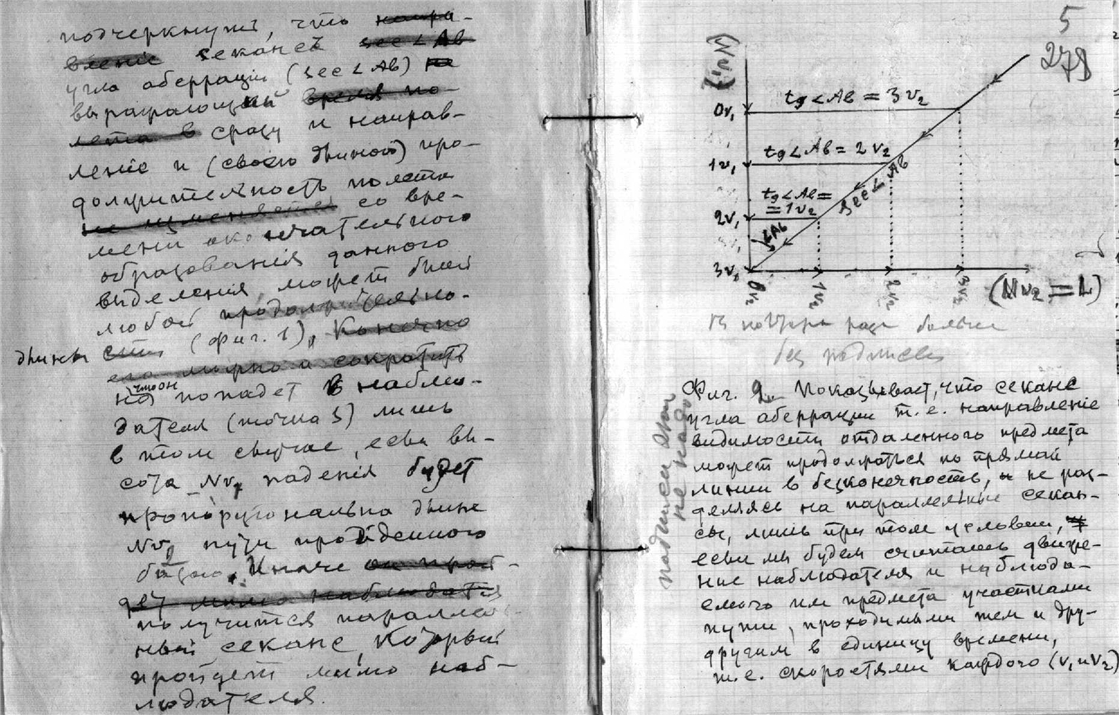 подчеркнуть, что напра-
вленіе секансъ sec∠Ab
угла аберраціи (sec∠Ab) на
выражающій время по-
лета в сразу и направ-
леніе и (своею длиной) про-
должительность полета
не изменяется со вре-
мени окончательного
образованія данного
виденія, может быть
любой продолжительно-
длины сти (фиг. 1), Конечно
его
но что он попадет в наблю-
дателя (точка S) лишь
в том случае, если вы-
сота Nv₁ паденія будет
пропорціональна длине
Nv₂ пути пройденного
базою. Иначе он прой-
дет мимо наблюдателя
получится параллель-
ный секанс, который
пройдет мимо наб-
людателя.
5
279
(Nv₁)
0v₁
tg∠Ab = 3v₂
1v₁
tg∠Ab = 2v₂
tg∠Ab =
= 1v₂
sec∠Ab
2v₁
∠Ab
3v₁
0v₂
1v₂
2v₂
3v₂
(Nv₂ = L)
без подписей
подписи этой
не надо
Фиг. 2. Показывает, что секанс
угла аберрации т.е. направленіе
видимости отдаленного предмета
может продолжаться по прямой
линии в безконечность, и не раз-
деляясь на параллельные секан-
сы, лишь при том условии,
если мы будем считать движе-
ние наблюдателя и наблюда-
емого им предмета участками
пути, проходимыми тем и дру-
другим в единицу времени,
т.е. скоростями каждого (v₁ и v₂)